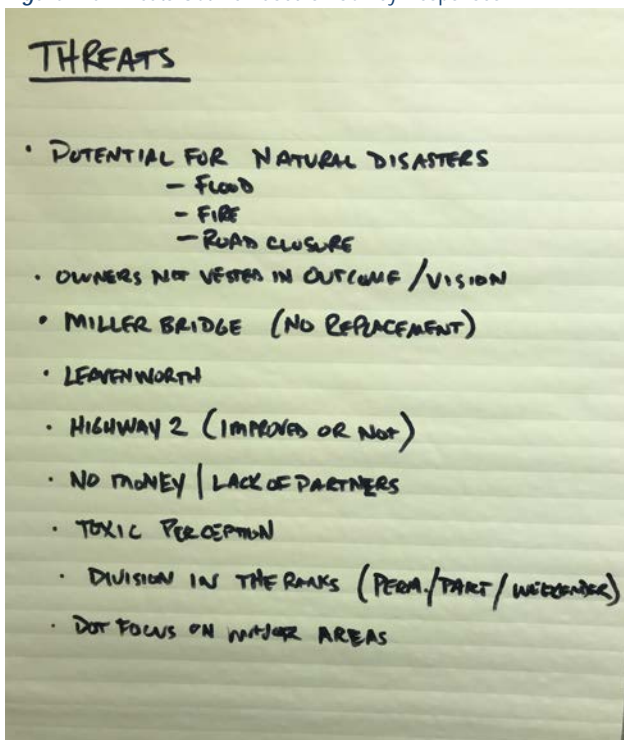 THREATS
• POTENTIAL FOR NATURAL DISASTERS
- FLOOD
- FIRE
- ROAD CLOSURE
• OWNERS NOT VESTED IN OUTCOME / VISION
• MILLER BRIDGE (NO REPLACEMENT)
• LEAVENWORTH
• HIGHWAY 2 (IMPROVED OR NOT)
• NO MONEY | LACK OF PARTNERS
• TOXIC PERCEPTION
• DIVISION IN THE RANKS (PERM./PART/WEEKENDER)
• DOT FOCUS ON MAJOR AREAS